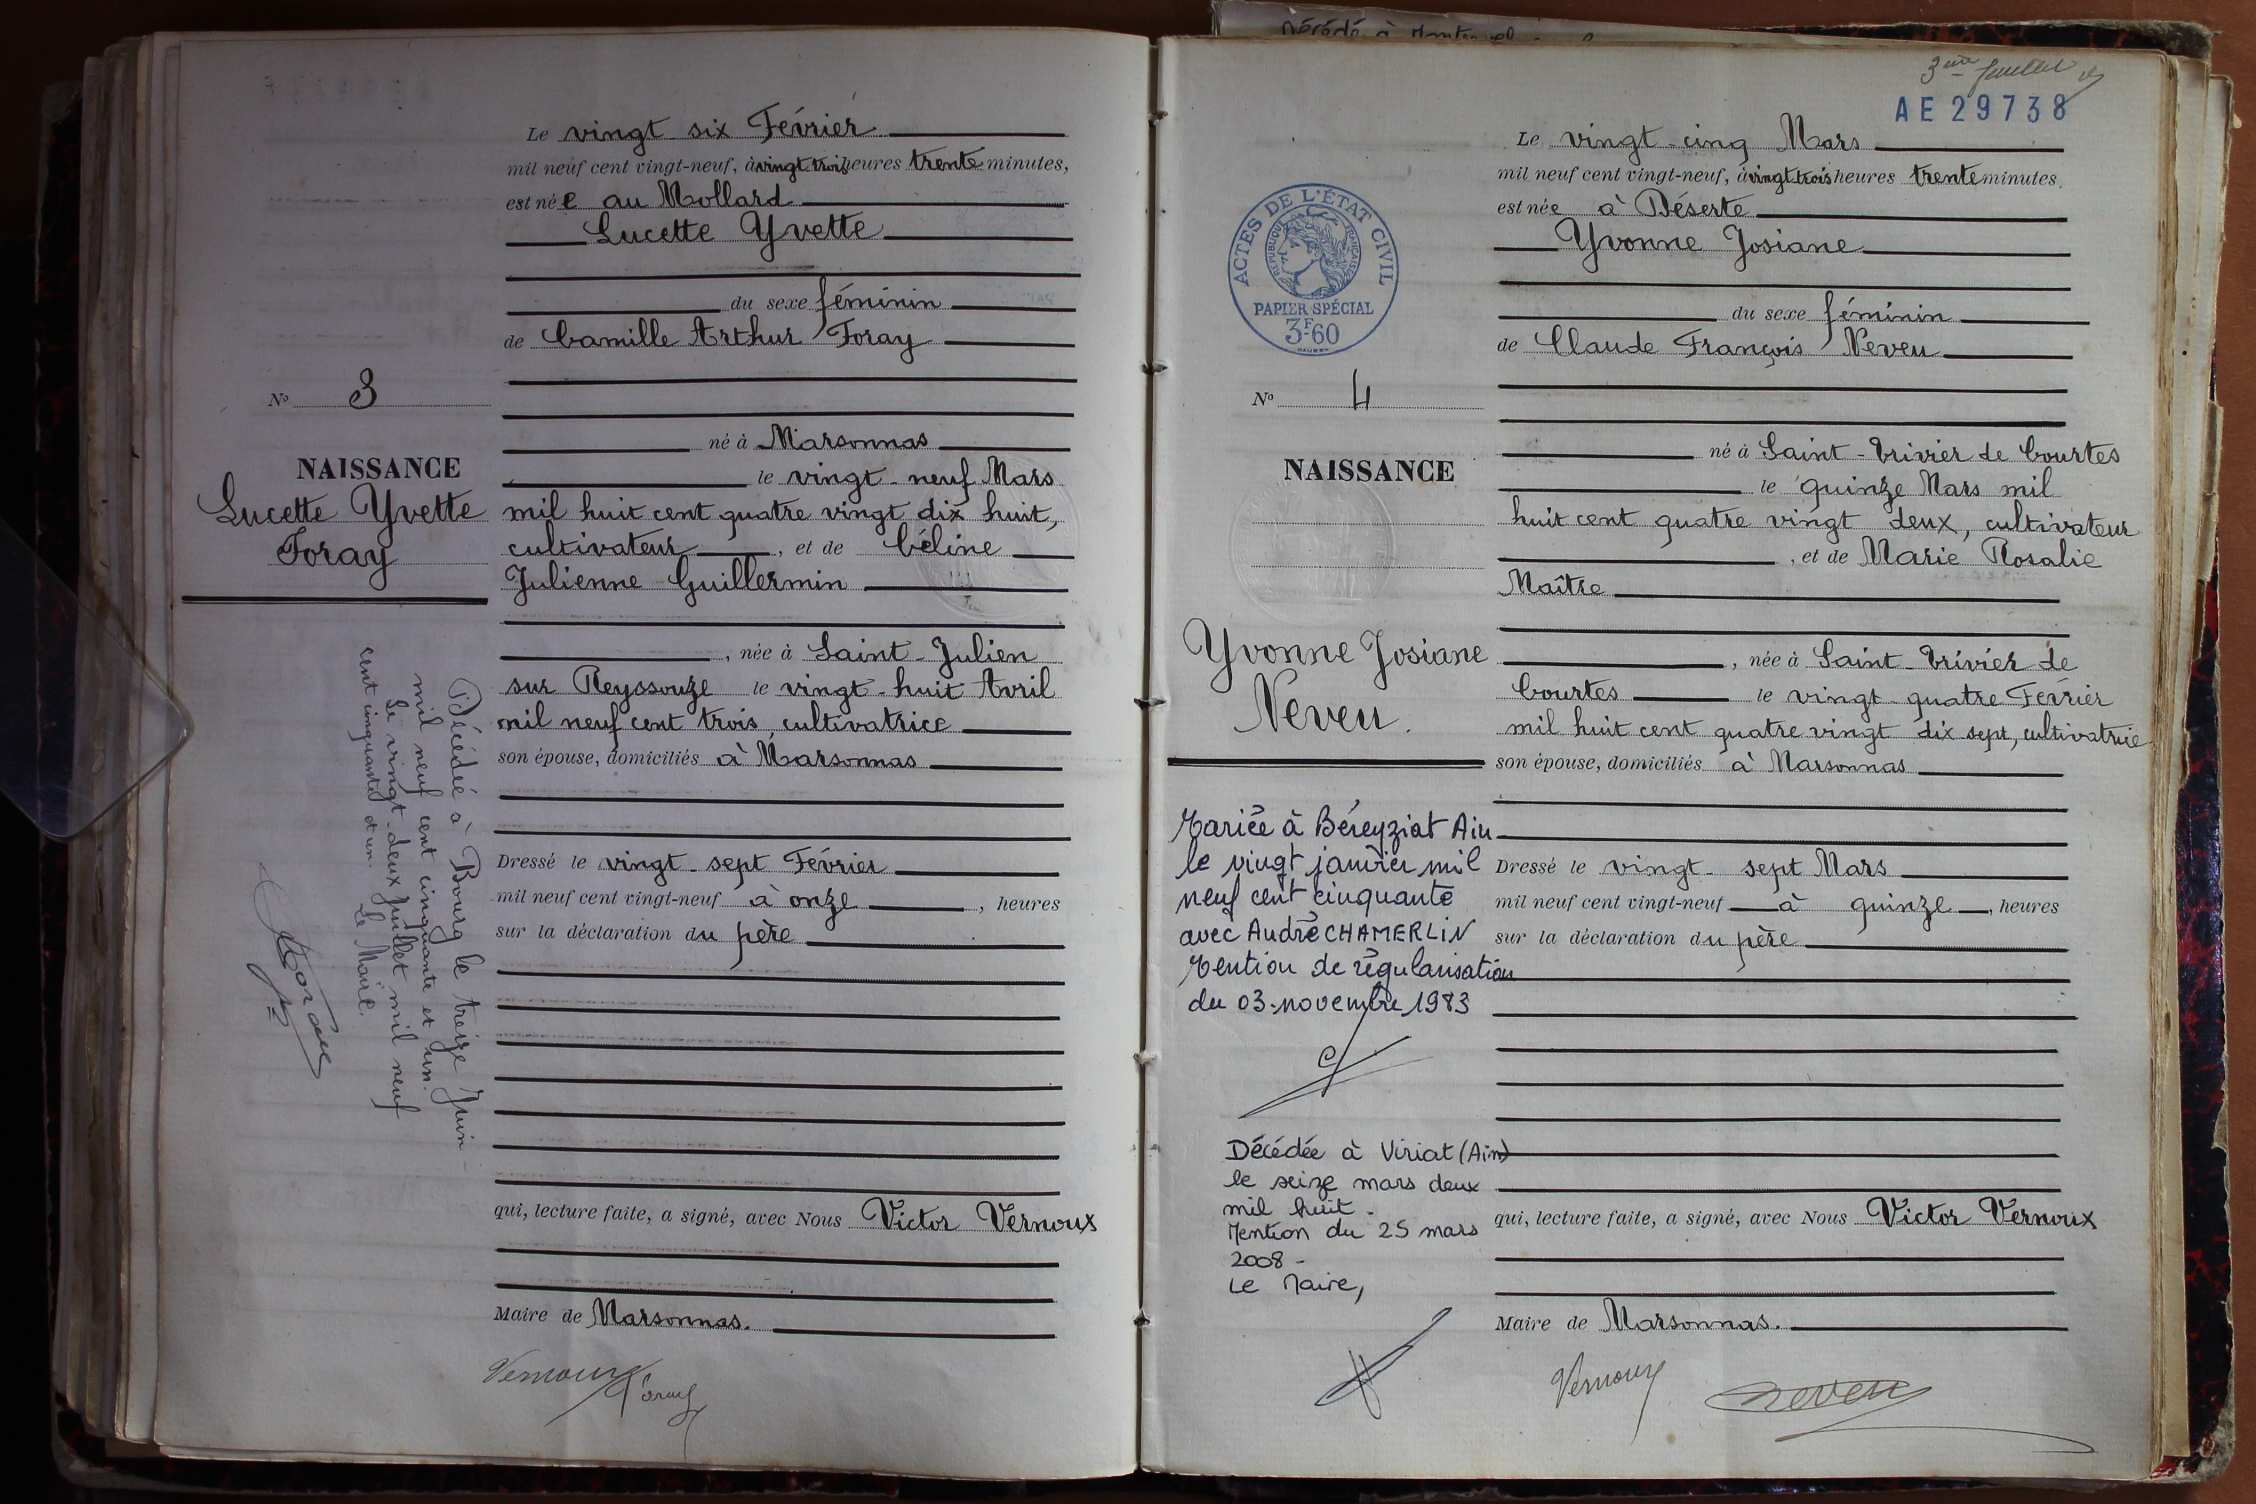 Décédé à
Le vingt six Février
mil neuf cent vingt-neuf, à vingt trois heures trente minutes,
est née au Mollard
Lucette Yvette
du sexe féminin
de Camille Arthur Foray
Nº 3
né à Marsonnas
NAISSANCE
le vingt-neuf Mars
Lucette Yvette
Foray
mil huit cent quatre vingt dix huit,
cultivateur, et de Céline
Julienne Guillermin
, née à Saint-Julien
sur Reyssouze le vingt-huit Avril
mil neuf cent trois, cultivatrice
son épouse, domiciliés à Marsonnas
Dressé le vingt-sept Février
mil neuf cent vingt-neuf à onze, heures
sur la déclaration du père
qui, lecture faite, a signé, avec Nous Victor Vernoux
Maire de Marsonnas.
Vernoux Foray
Décédé à Bourg le treize Juin
mil neuf cent cinquante et un.
Le vingt-deux Juillet mil neuf
cent cinquante et un. Le Maire.
3ème feuillet
AE 29738
ACTES DE L'ÉTAT CIVIL
RÉPUBLIQUE FRANÇAISE
PAPIER SPÉCIAL
3F60
Le vingt-cinq Mars
mil neuf cent vingt-neuf, à vingt trois heures trente minutes,
est née à Déserte
Yvonne Josiane
du sexe féminin
de Claude François Neveu
Nº 4
né à Saint-Trivier de Courtes
NAISSANCE
le quinze Mars mil
huit cent quatre vingt deux, cultivateur
, et de Marie Rosalie
Maître
Yvonne Josiane
Neveu.
, née à Saint-Trivier de
Courtes le vingt-quatre Février
mil huit cent quatre vingt dix sept, cultivatrice
son épouse, domiciliés à Marsonnas
Dressé le vingt-sept Mars
mil neuf cent vingt-neuf à quinze, heures
sur la déclaration du père
qui, lecture faite, a signé, avec Nous Victor Vernoux
Maire de Marsonnas.
Vernoux Neveu
Mariée à Béreyziat Ain
le vingt janvier mil
neuf cent cinquante
avec André CHAMERLIN
Mention de régularisation
du 03 novembre 1983
Décédée à Viriat (Ain)
le seize mars deux
mil huit.
Mention du 25 mars
2008 -
Le Maire,